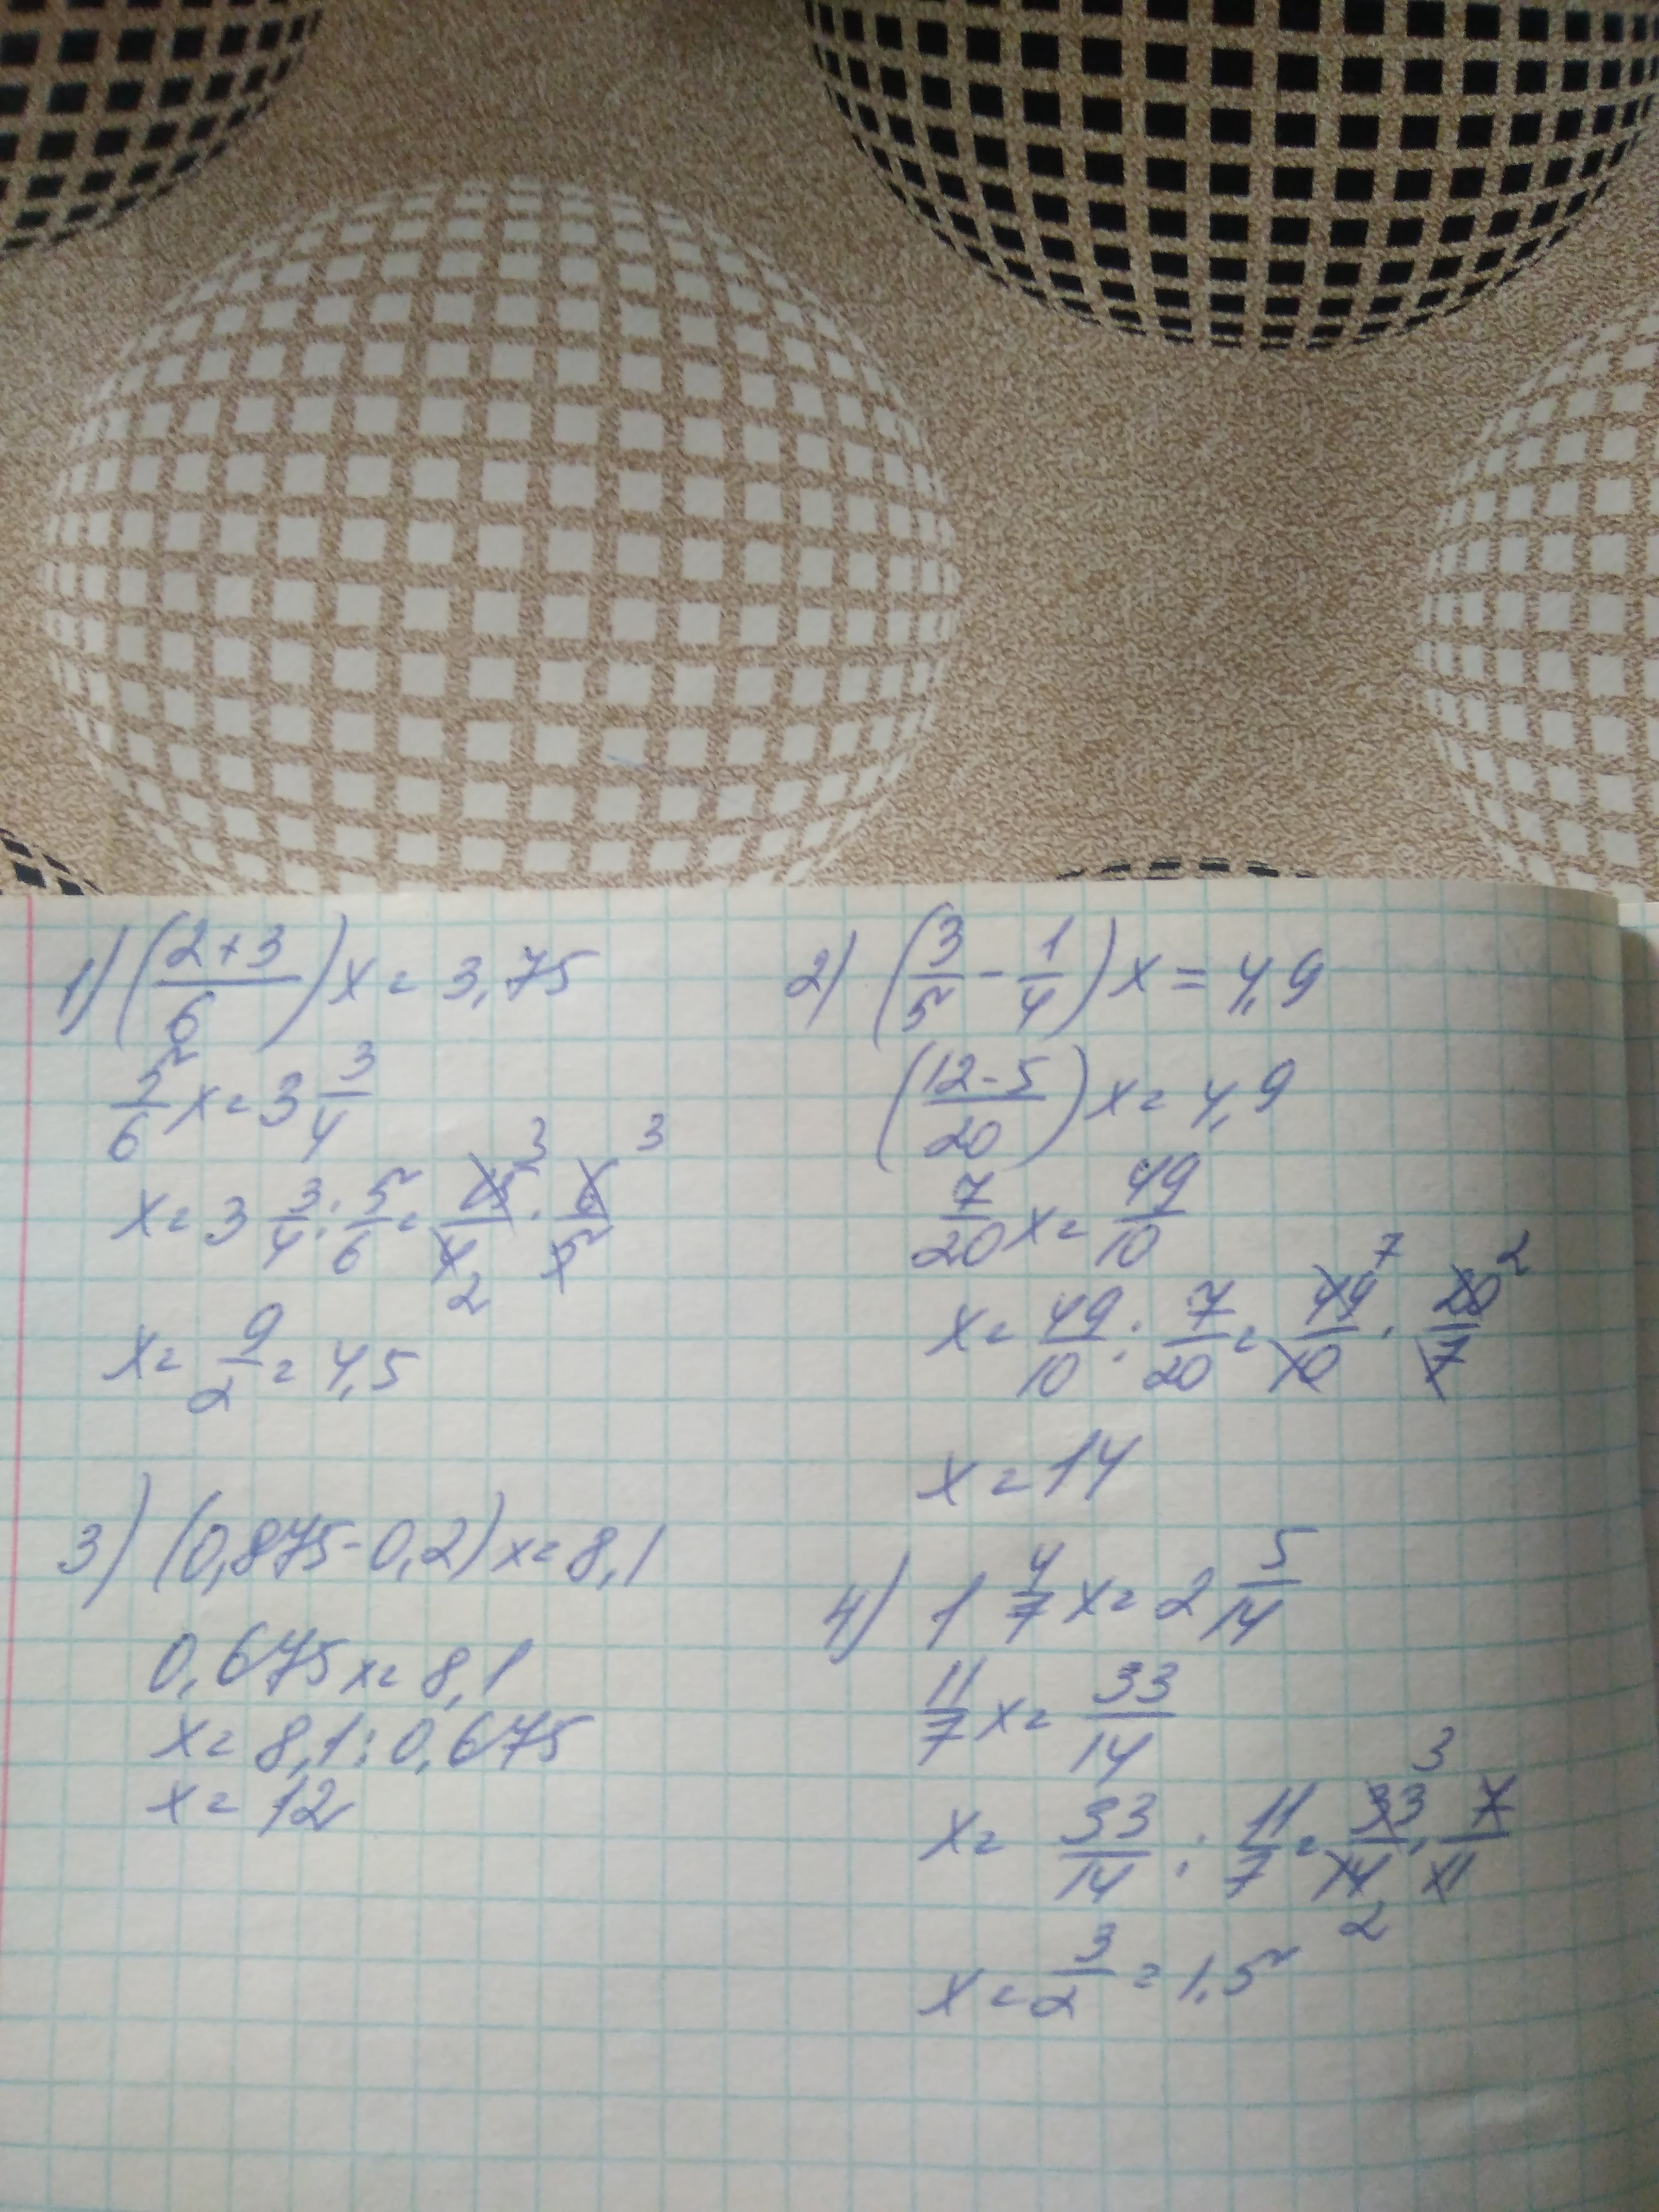 1) ((2+3)/6) x = 3,75
5/6 x = 3 3/4
x = 3 3/4 : 5/6 = 15/4 · 6/5
3 3
2
x = 9/2 = 4,5
2) (3/5 - 1/4) x = 4,9
((12-5)/20) x = 4,9
7/20 x = 49/10
x = 49/10 : 7/20 = 49/10 · 20/7
7 2
x = 14
3) (0,875-0,2) x = 8,1
0,675 x = 8,1
x = 8,1 : 0,675
x = 12
4) 1 4/7 x = 2 5/14
11/7 x = 33/14
x = 33/14 : 11/7 = 33/14 · 7/11
3
2
x = 3/2 = 1,5